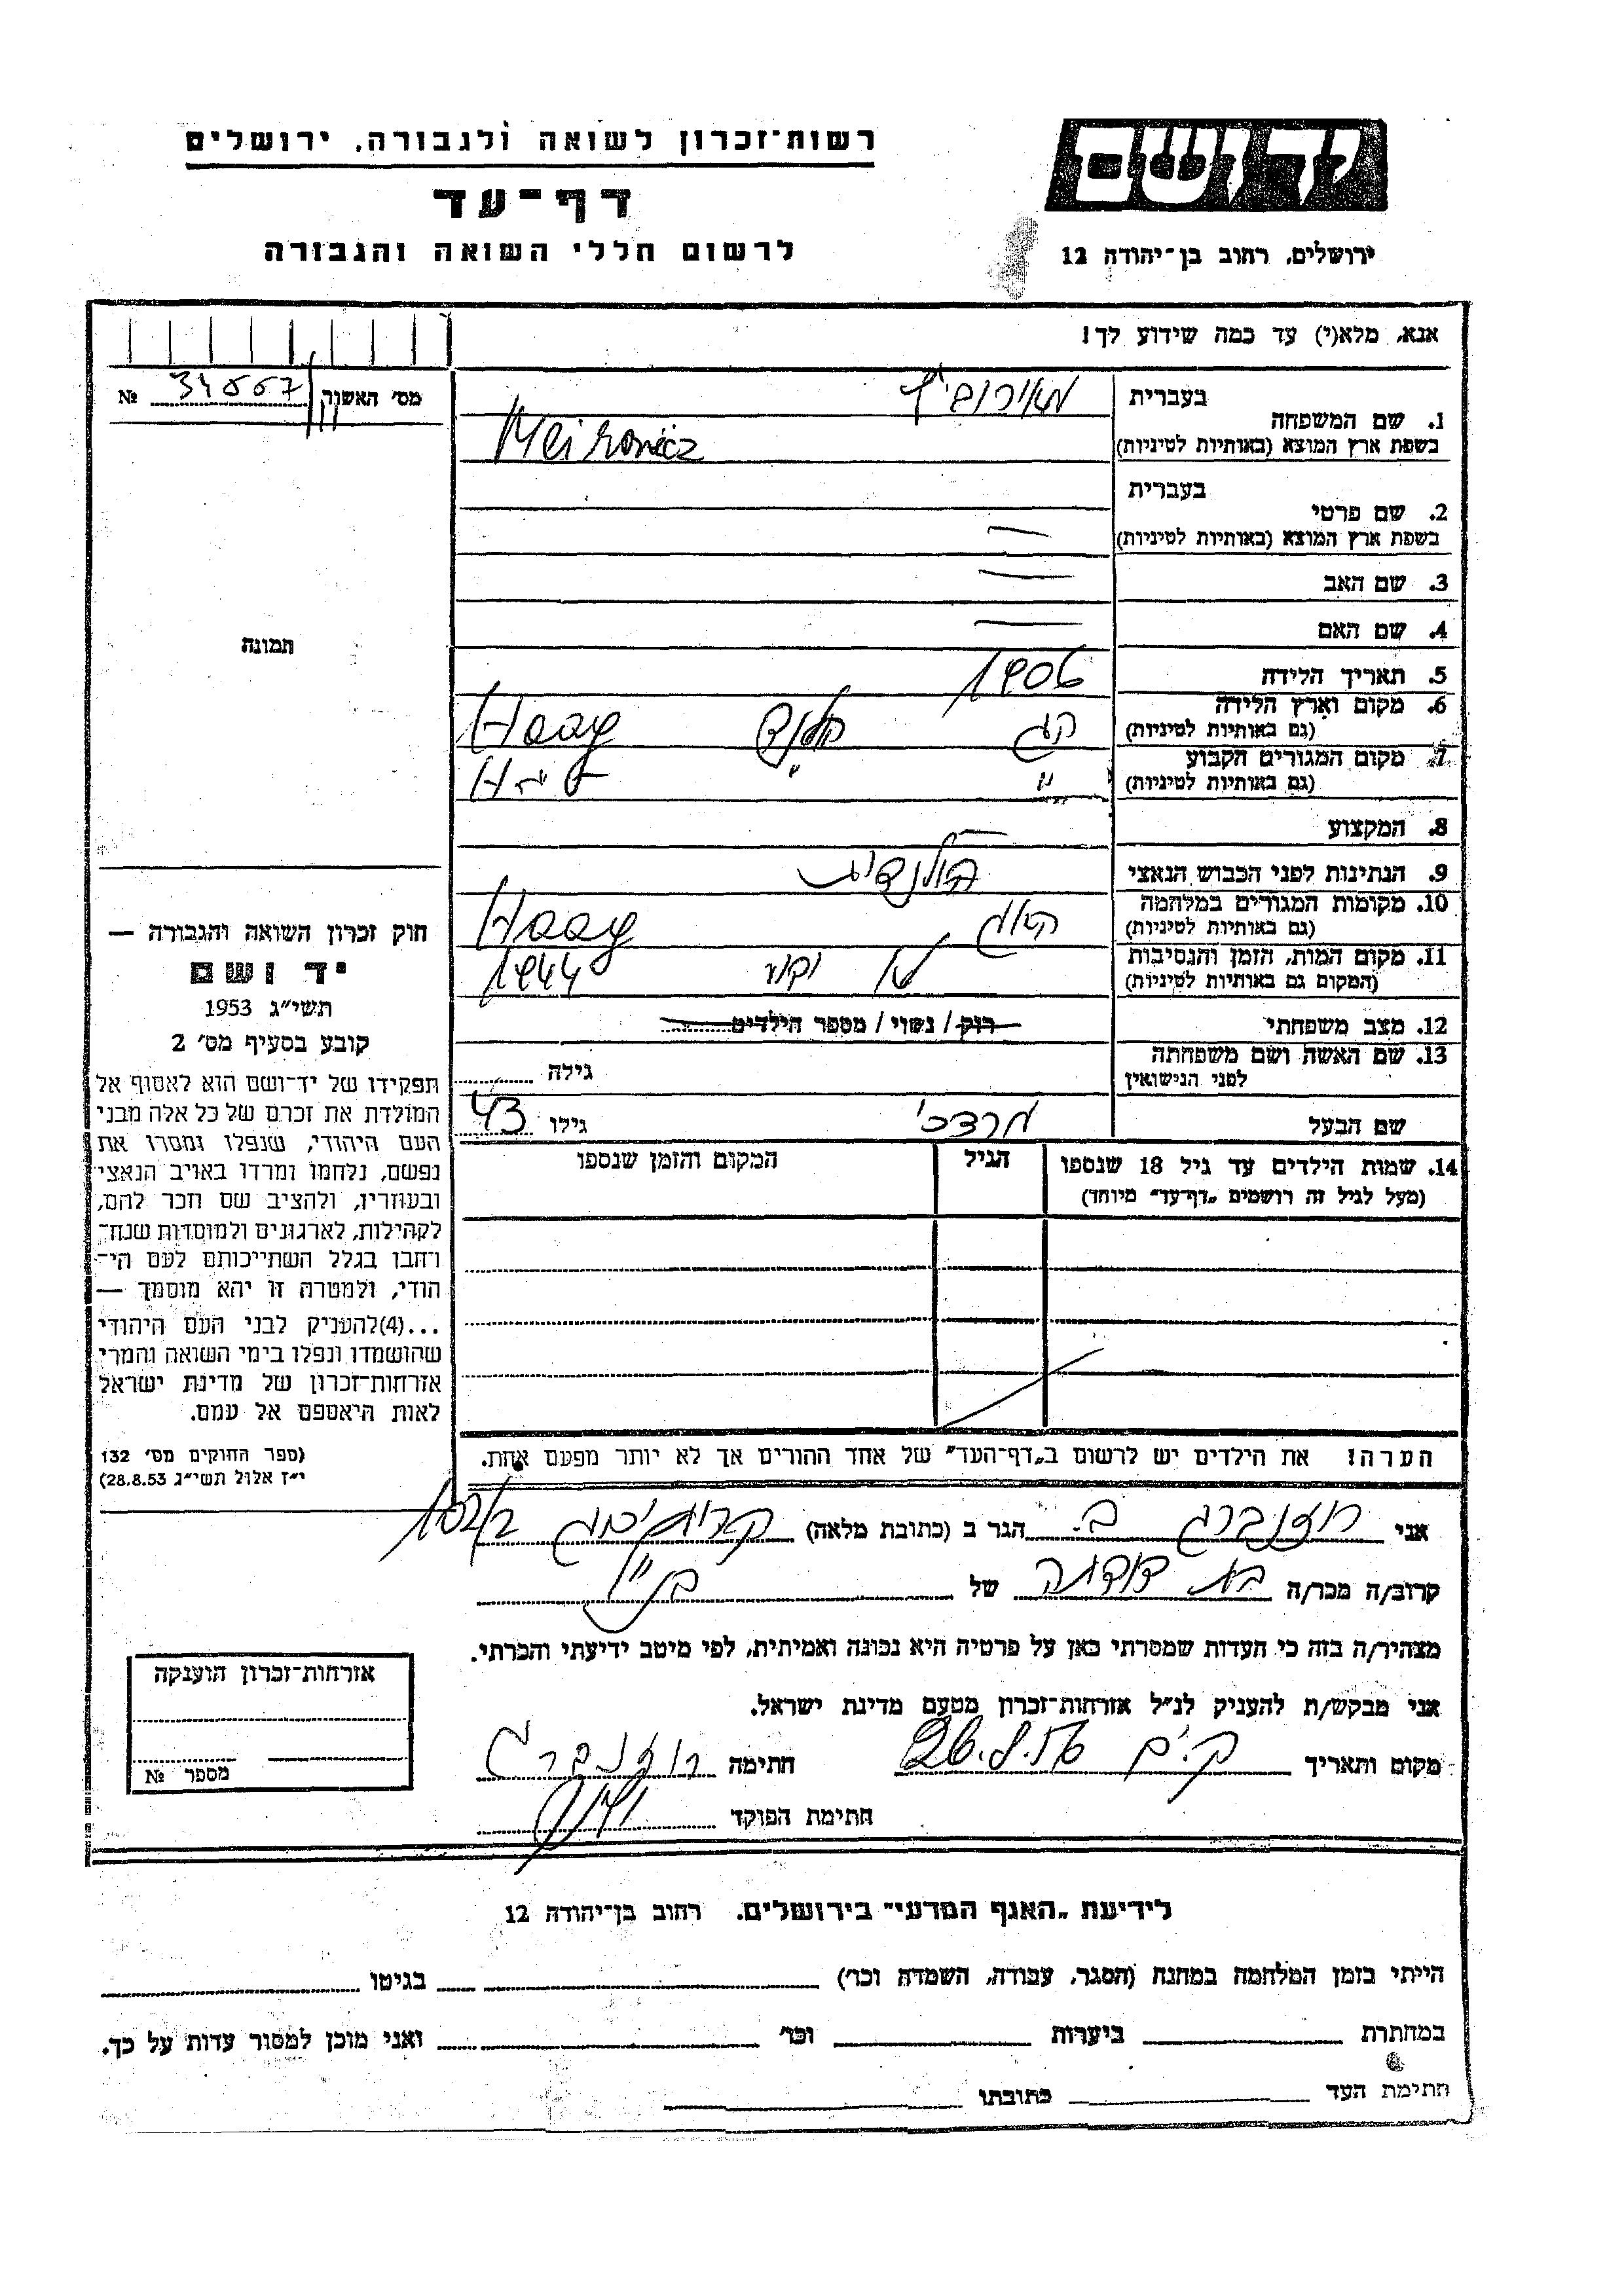 רשות־זכרון לשואה ולגבורה, ירושלים
דף־עד
לרשום חללי השואה והגבורה
יד ושם
ירושלים, רחוב בן־יהודה 12
אנא, מלא(י) עד כמה שידוע לך!
מס׳ האשור № 34557
תמונה
בעברית
1. שם המשפחה
בשפת ארץ המוצא (באותיות לטיניות)
בעברית
2. שם פרטי
בשפת ארץ המוצא (באותיות לטיניות)
3. שם האב
4. שם האם
5. תאריך הלידה 1906
6. מקום וארץ הלידה הג הולנד Haag
(גם באותיות לטיניות)
7. מקום המגורים הקבוע ״ ״
(גם באותיות לטיניות)
8. המקצוע
9. הנתינות לפני הכבוש הנאצי הולנדית
10. מקומות המגורים במלחמה האג Haag
(גם באותיות לטיניות)
11. מקום המות, הזמן והנסיבות 1944
(המקום גם באותיות לטיניות)
12. מצב משפחתי רוק / נשוי / מספר הילדים
13. שם האשה ושם משפחתה גילה
לפני הנישואין
שם הבעל מרדכי גילו 43
14. שמות הילדים עד גיל 18 שנספו הגיל המקום והזמן שנספו
(מעל לגיל זה רושמים „דף־עד״ מיוחד)
הערה! את הילדים יש לרשום ב„דף־העד״ של אחד ההורים אך לא יותר מפעם אחת.
חוק זכרון השואה והגבורה —
יד ושם
תשי״ג 1953
קובע בסעיף מס׳ 2
תפקידו של יד־ושם הוא לאסוף אל
המולדת את זכרם של כל אלה מבני
העם היהודי, שנפלו ומסרו את
נפשם, נלחמו ומרדו באויב הנאצי
ובעוזריו, ולהציב שם וזכר להם,
לקהילות, לארגונים ולמוסדות שנח־
רחבו בגלל השתייכותם לעם הי־
הודי, ולמטרה זו יהא מוסמך —
...(4)להעניק לבני העם היהודי
שהושמדו ונפלו בימי השואה והמרי
אזרחות־זכרון של מדינת ישראל
לאות היאספם אל עמם.
(ספר החוקים מס׳ 132
י״ז אלול תשי״ג 28.8.53)
אני רוזנברג ב. הגר ב (כתובת מלאה)
קרוב/ה מכר/ה בת דודתה של
מצהיר/ה בזה כי העדות שמסרתי כאן על פרטיה היא נכונה ואמיתית, לפי מיטב ידיעתי והכרתי.
אני מבקש/ת להעניק לנ״ל אזרחות־זכרון מטעם מדינת ישראל.
מקום ותאריך ק.ים 26.8.56 חתימה רוזנברג
חתימת הפוקד
אזרחות־זכרון הוענקה
מספר №
לידיעת „האגף המדעי״ בירושלים. רחוב בן־יהודה 12
הייתי בזמן המלחמה במחנה (הסגר, עבודה, השמדה וכר׳) בגיטו
במחתרת ביערות וכר׳ ואני מוכן למסור עדות על כך.
חתימת העד כתובתו